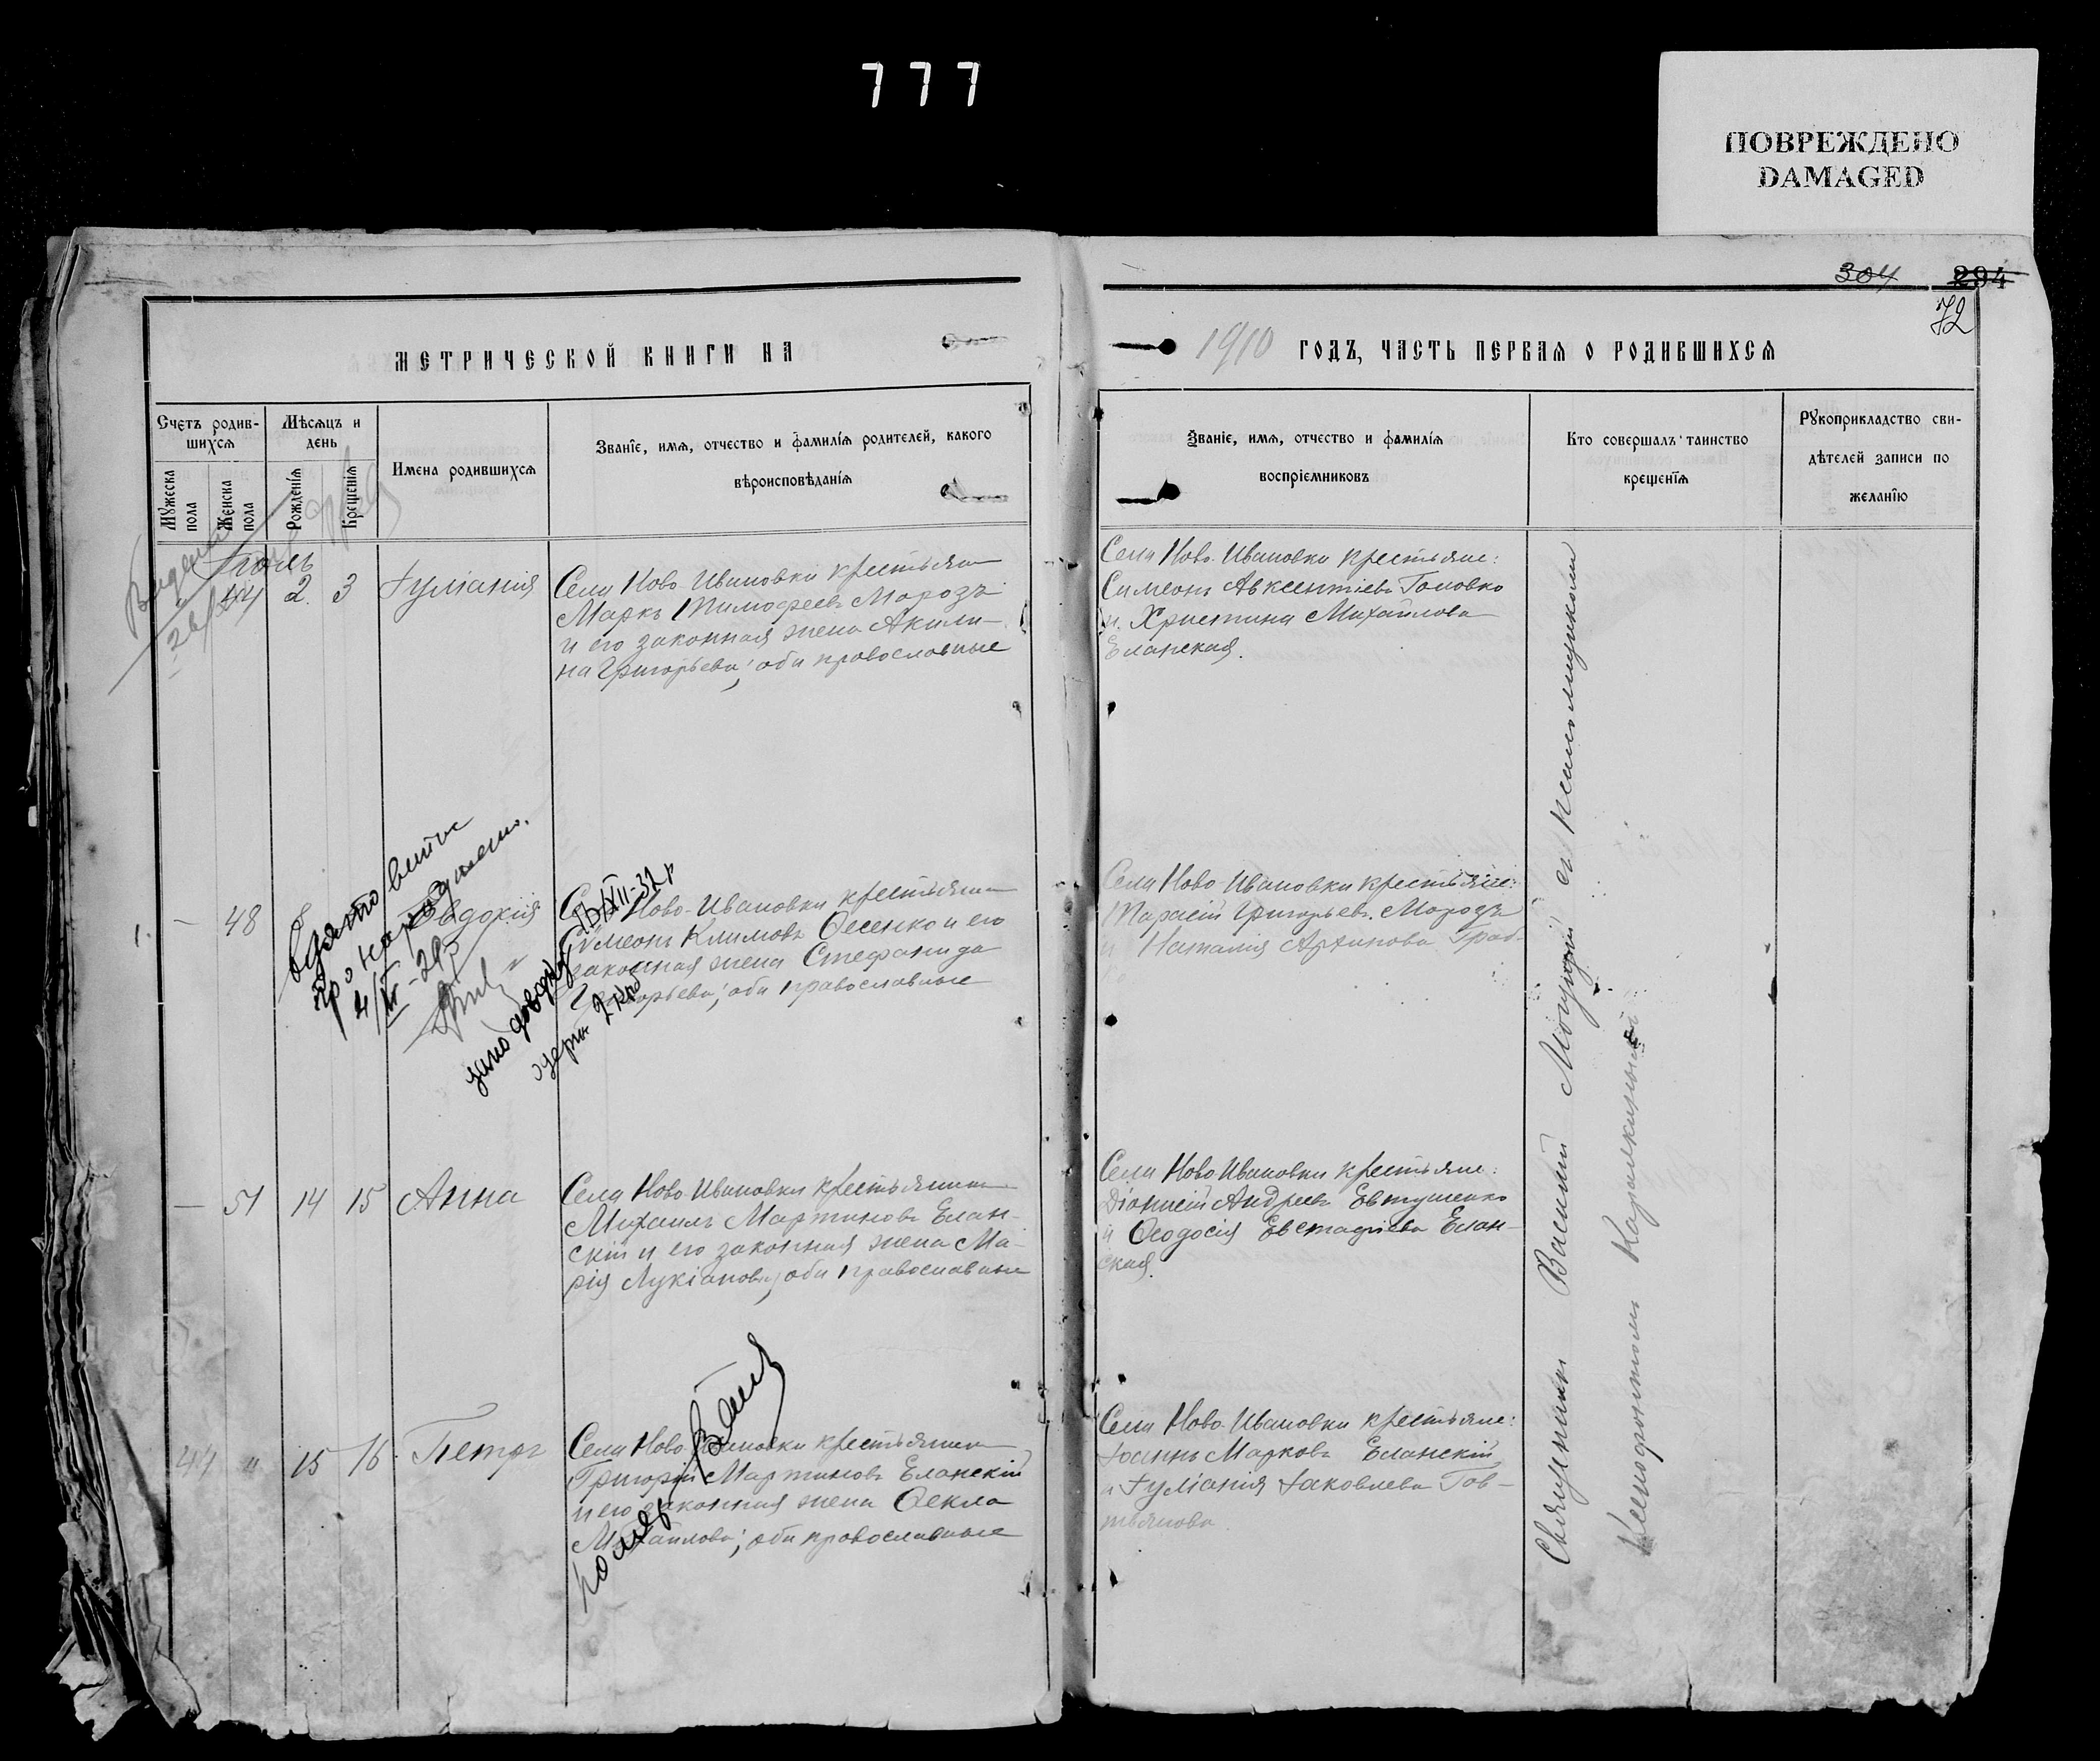 777
ПОВРЕЖДЕНО
DAMAGED
304 294
72
МЕТРИЧЕСКОЙ КНИГИ НА
1910 ГОДЪ, ЧАСТЬ ПЕРВАЯ О РОДИВШИХСЯ
Счетъ родив-
шихся
Мужеска пола
Женска пола
Мѣсяцъ и
день
Рожденія
Крещенія
Имена родившихся
Званіе, имя, отчество и фамилія родителей, какого
вѣроисповѣданія
Званіе, имя, отчество и фамилія
воспріемниковъ
Кто совершалъ таинство
крещенія
Рукоприкладство сви-
дѣтелей записи по
желанію
Іюль
2. 3 Іуліанія
Села Ново-Ивановки крестьянин
Маркъ Тимофеевъ Морозъ
и его законная жена Акили-
на Григорьева; оба православные
Села Ново-Ивановки крестьяне:
Симеонъ Авксентіевъ Головко
и Христина Михайлова
Еланская.
- 48 Евдокія
Ново-Ивановки крестьянин
Сѵмеонъ Климовъ Ѳесенко и его
законная жена Стефанида
Григорьева; оба православные
Села Ново-Ивановки крестьяне:
Тарасій Григорьевъ Морозъ
и Наталія Архипова
взято витяг
про народжен.
4/IV-29р
XII-32 р
- 51 14 15 Анна
Села Ново-Ивановки крестьянин
Михаилъ Мартиновъ Елан-
скій и его законная жена Ма-
рія Лукіанова; оба православные
Села Ново-Ивановки крестьяне:
Діонисій Андреевъ Евтушенко
и Ѳеодосія Евстафіева Елан-
ская.
44 " 15 16. Петръ
Села Ново-Ивановки крестьянин
Григорій Мартиновъ Еланскій
и его законная жена Ѳекла
Михайлова; оба православные
Села Ново-Ивановки крестьяне:
Іоаннъ Марковъ Еланскій
и Іуліанія Іаковлева Тов-
тянова
Священникъ Василій съ псаломщикомъ
Ксенофонтомъ